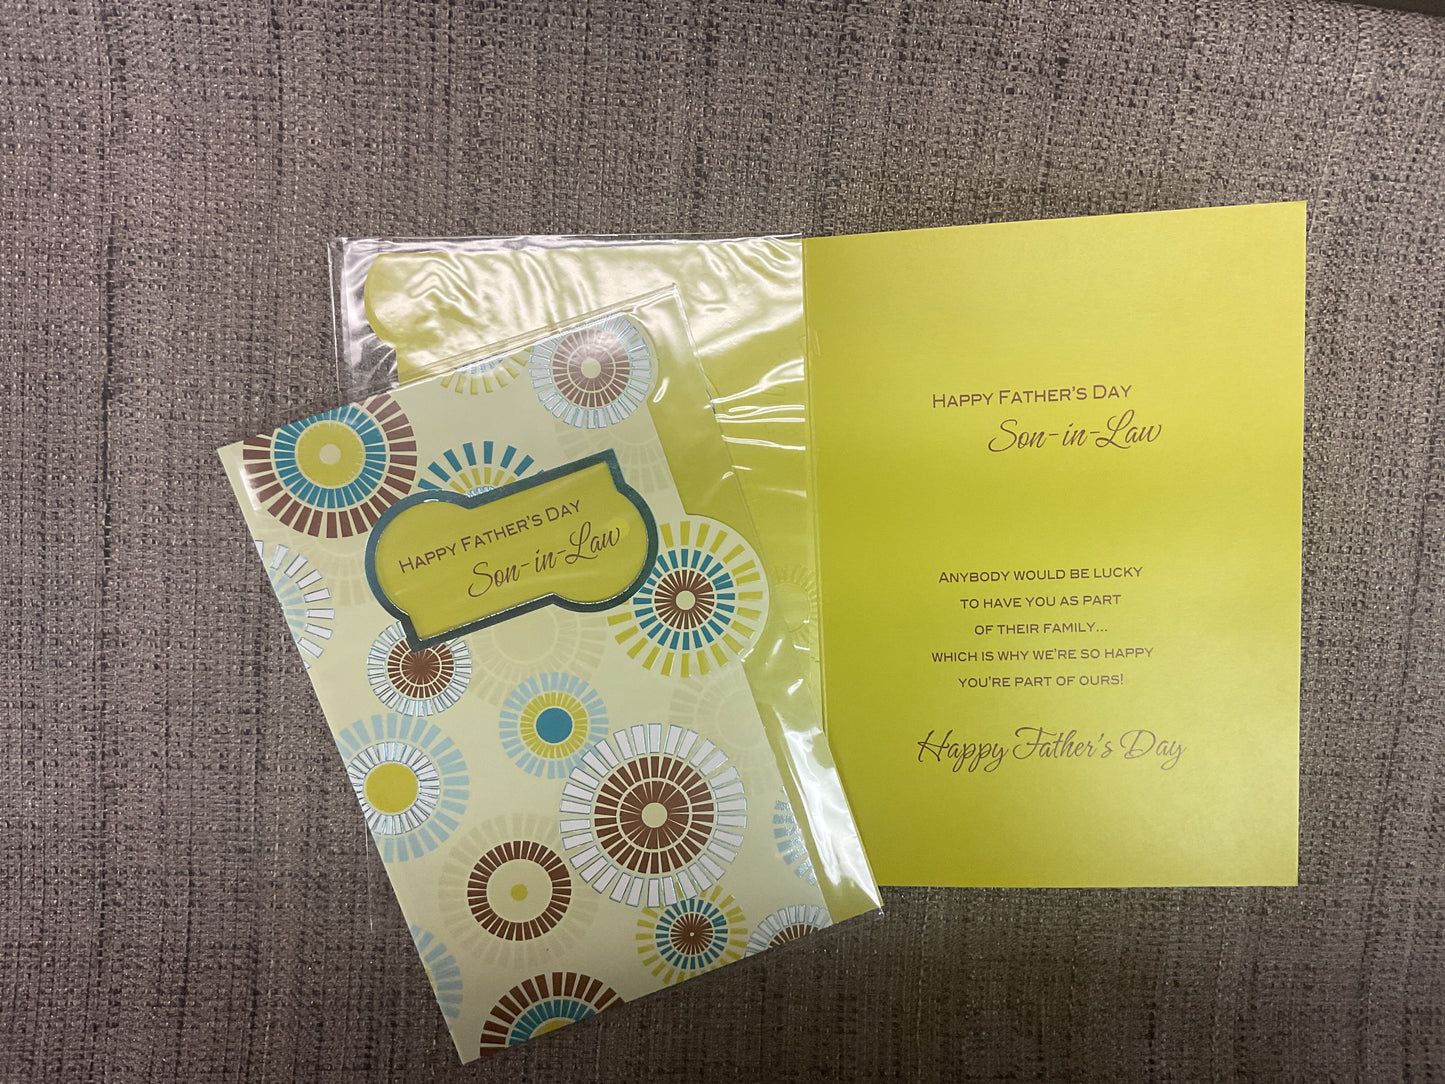 Happy Father's Day
Son-in-Law
Happy Father's Day
Son-in-Law
Anybody would be lucky
to have you as part
of their family...
which is why we're so happy
you're part of ours!
Happy Father's Day